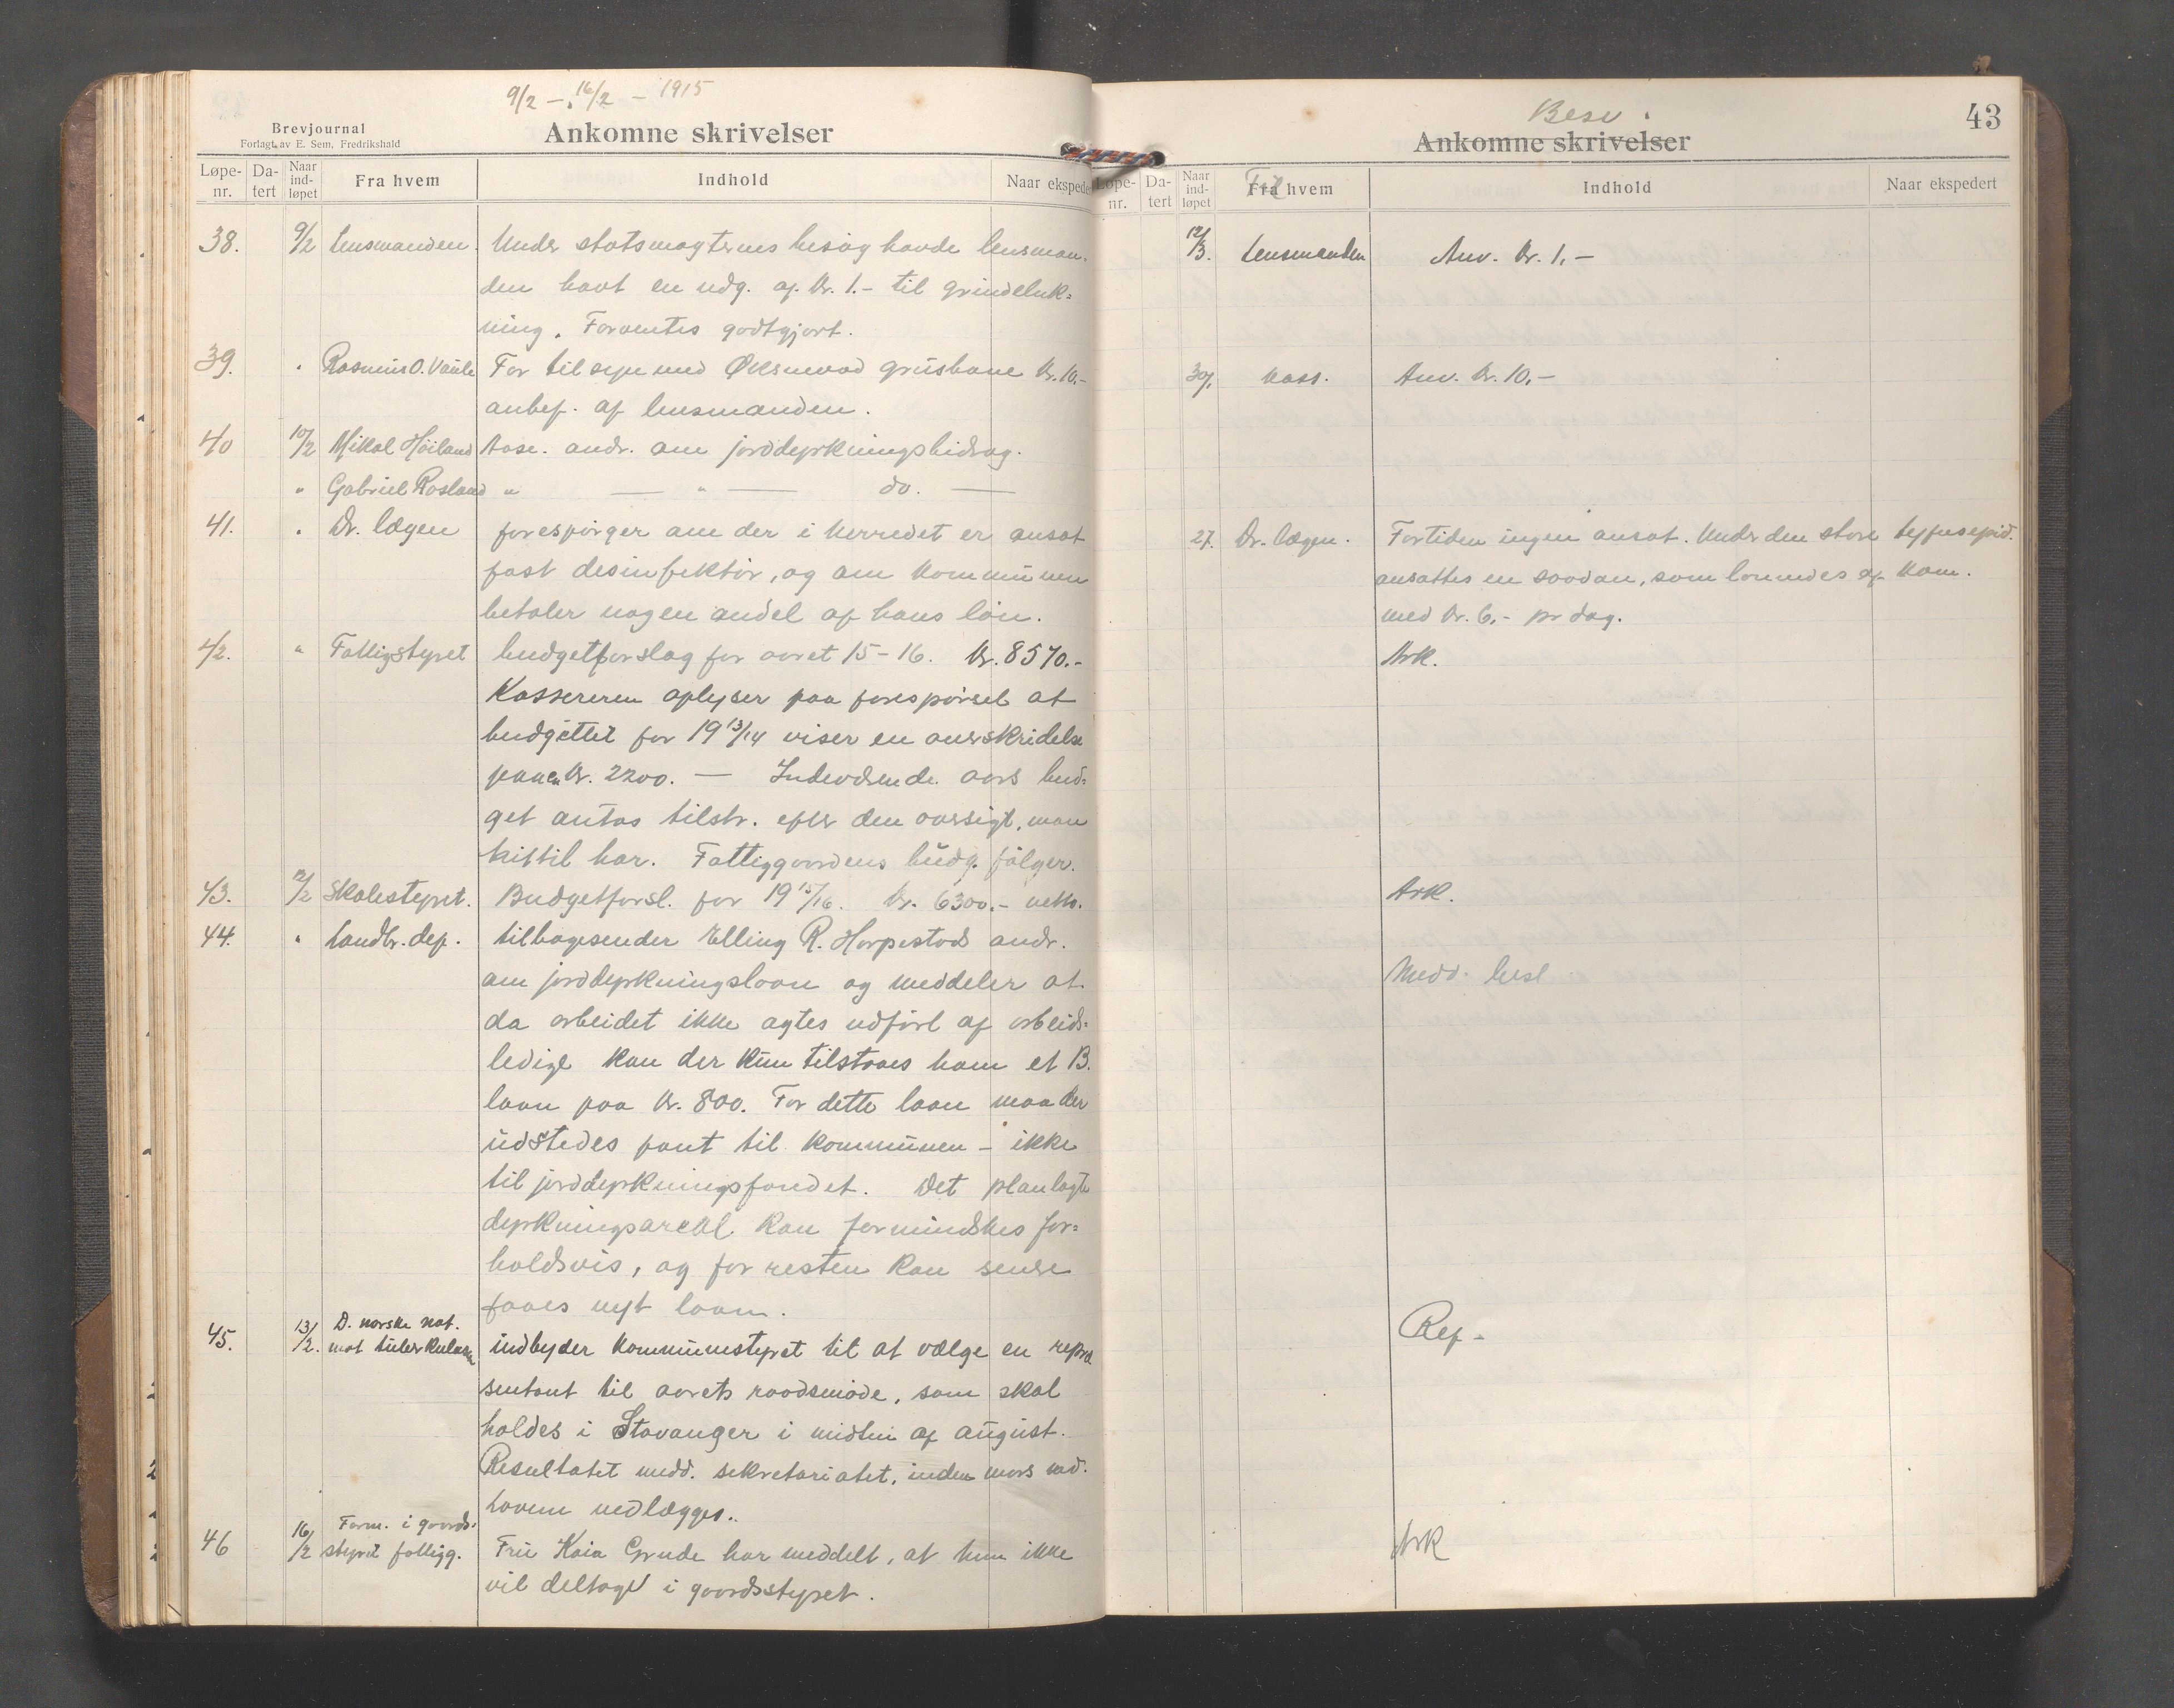 9/2 – 16/2 – 1915
Brevjournal
Forlagt av E. Sem, Fredrikshald
Ankomne skrivelser
Løpe-nr. Da-tert Naar ind-løpet Fra hvem Indhold Naar ekspede
38. 9/2 Lensmanden. Under statsmagternes besøg havde lensman-
den havt en udg. af Kr. 1.- til grindeluk-
ning. Forventes godtgjort.
39. " Rasmus O. Vaule For tilsyn med Øksnevad grusbane Kr. 10.-
anbef. af lensmanden.
40 10/2 Mikal Höiland Aase. andr. om jorddyrkningsbidrag.
" Gabriel Rosland " — " — do. —
41. " Dr. lægen forespörger om der i herredet er ansat
fast desinfektör, og om kommunen
betaler nogen andel af hans lön.
42. " Fattigstyret budgetforslag for aaret 15-16. Kr. 8570.-
Kassereren oplyser paa forespörsel at
budgettet for 19 13/14 viser en overskridelse
paa ca Kr. 2200. — Indeværende aars bud-
get antas tilstr. efter den oversigt, man
hittil har. Fattiggaardens budg. fölger.
43. 12/2 Skolestyret. Budgetforsl. for 19 15/16. Kr. 6300.- netto.
44. " Landbr. dep. tilbagesender Elling R. Horpestads andr.
om jorddyrkningslaan og meddeler at
da arbeidet ikke agtes udfört af arbeids-
ledige kan der kun tilstaaes ham et B.
laan paa Kr. 800. For dette laan maa der
udstedes pant til kommunen – ikke
til jorddyrkningsfondet. Det planlagte
dyrkningsareal kan formindskes for-
holdsvis, og for resten kan senere
faaes nyt laan.
45. 13/2. D. norske nat.
mot tuberkulose indbyder kommunestyret til at vælge en repræ
sentant til aarets raadsmöde, som skal
holdes i Stavanger i midten af august.
Resultatet medd. sekretariatet, inden mars md.
Lovene vedlægges.
46 16/2 Form. i gaards-
styret fattigg. Fru Kaia Grude har meddelt, at hun ikke
vil deltage i gaardsstyret.
43
Besv.
Ankomne skrivelser
Løpe-nr. Da-tert Naar ind-løpet Fra hvem Til Indhold Naar ekspedert
12/3. Lensmanden Anv. Kr. 1,-
30/1 Kass. Anv. Kr. 10,-
27. Dr. lægen. Fortiden ingen ansat. Under den store tyfusepid.
ansattes en saadan, som lönnedes af Kom.
med Kr. 6,- pr dag.
Ark.
Ark.
Medd. besl
Ref.
Ark